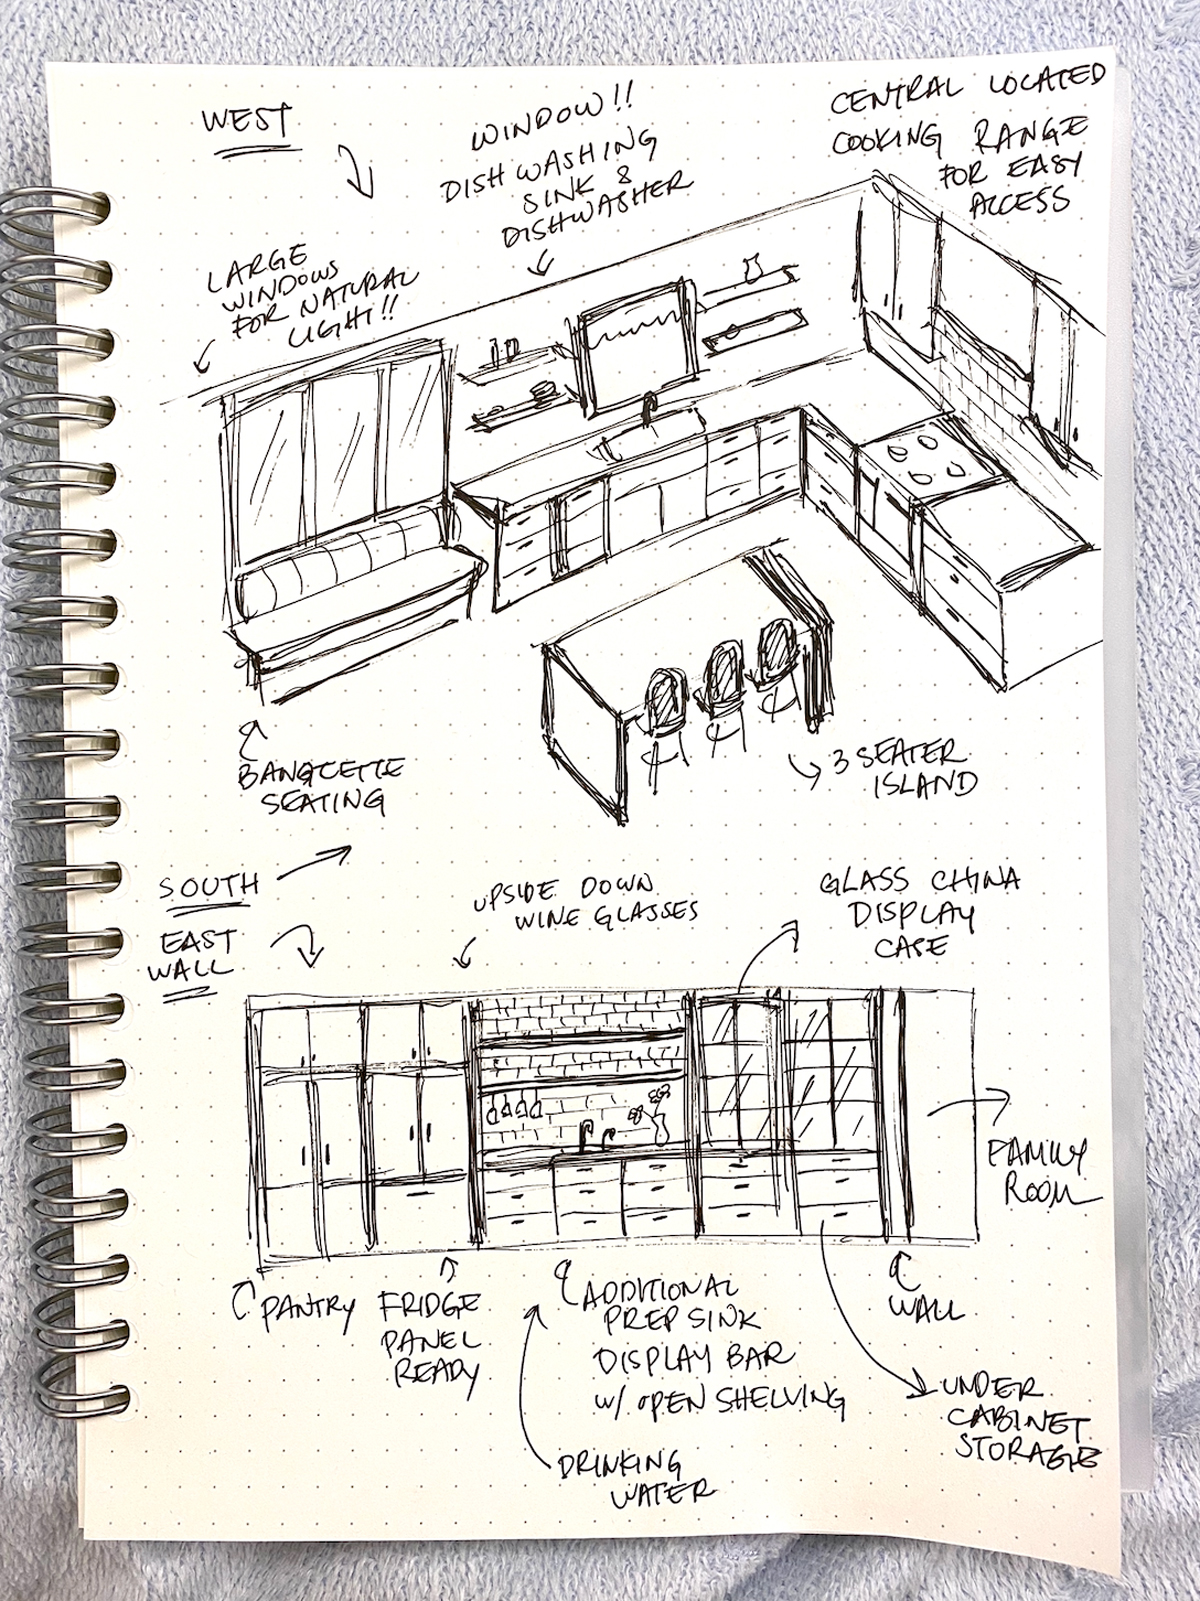 WEST
WINDOW!!
DISH WASHING
SINK &
DISHWASHER
CENTRAL LOCATED
COOKING RANGE
FOR EASY
ACCESS
LARGE
WINDOWS
FOR NATURAL
LIGHT!!
BANQCETTE
SEATING
3 SEATER
ISLAND
SOUTH
EAST
WALL
UPSIDE DOWN
WINE GLASSES
GLASS CHINA
DISPLAY
CASE
FAMILY
ROOM
PANTRY
FRIDGE
PANEL
READY
ADDITIONAL
PREP SINK
DISPLAY BAR
W/ OPEN SHELVING
WALL
UNDER
CABINET
STORAGE
DRINKING
WATER